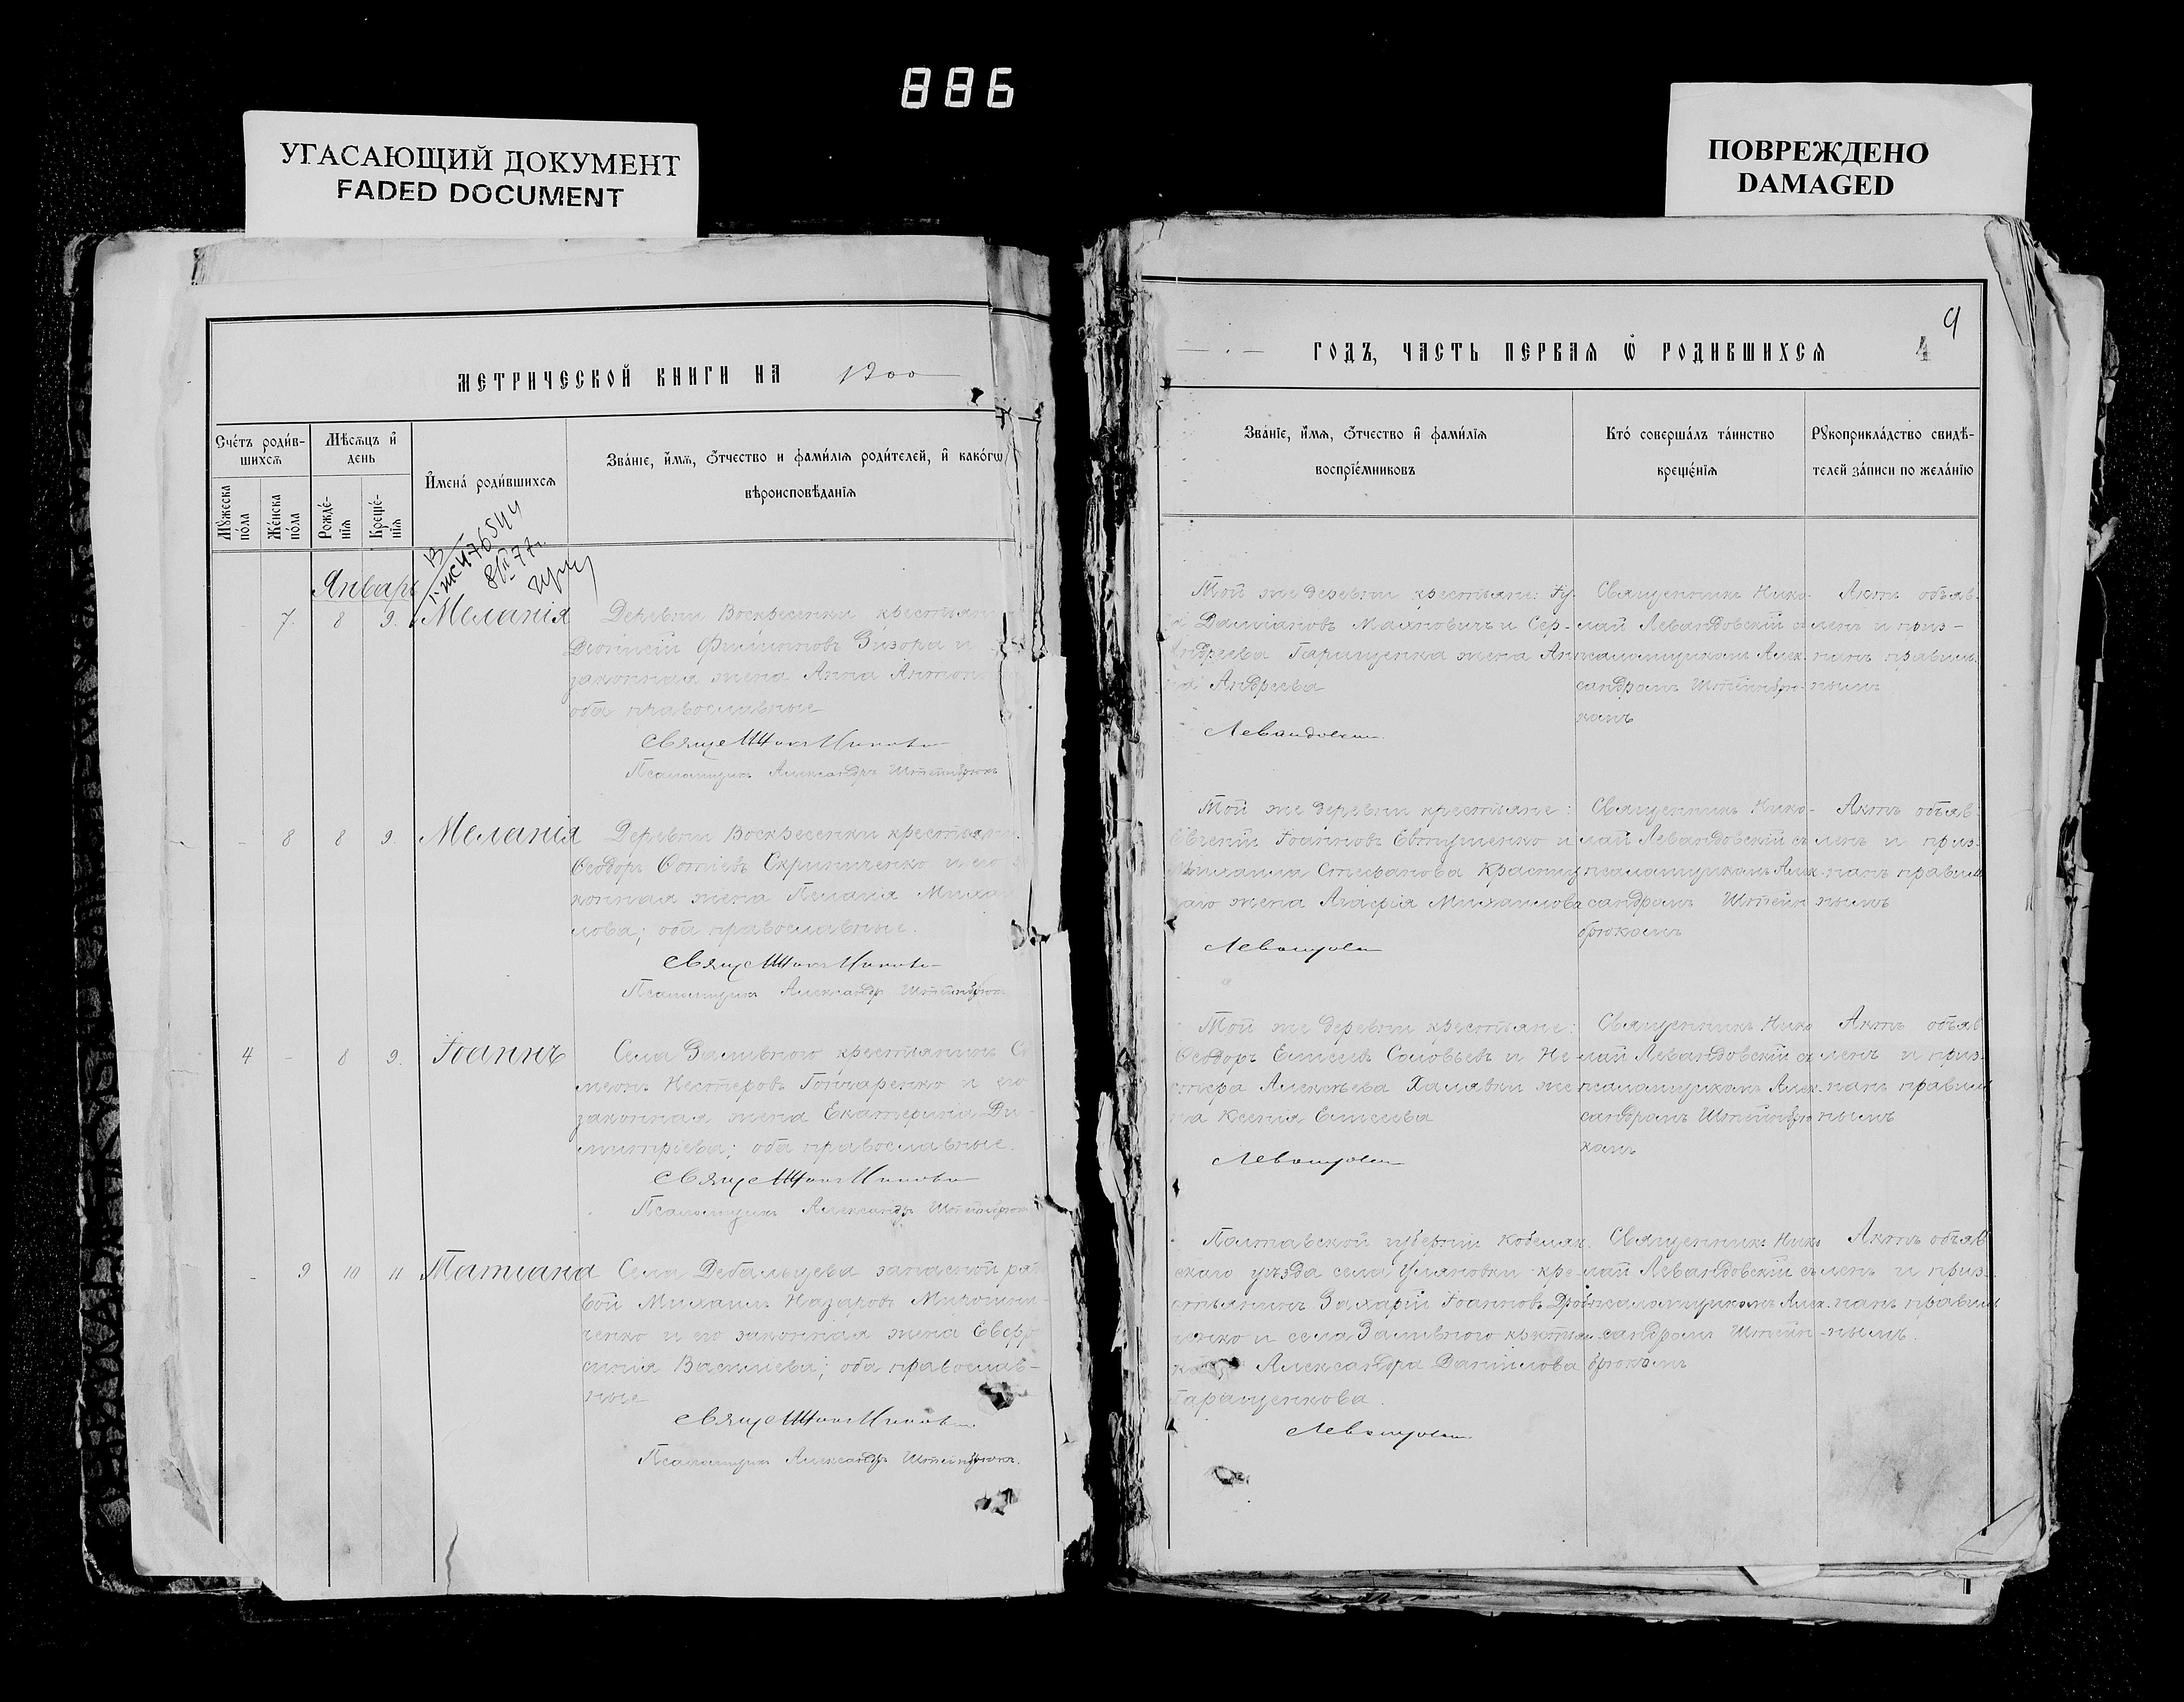 886
УГАСАЮЩИЙ ДОКУМЕНТ
FADED DOCUMENT
ПОВРЕЖДЕНО
DAMAGED
МЕТРИЧЕСКОЙ КНИГИ НА 1900
Сче́тъ роди́в-
шихсѧ
Мѣсѧцъ и҆
день
И҆мена́ роди́вшихсѧ
Зва́нїе, и҆́мѧ, ѻ҆́тчество и фами́лїѧ роди́телей, и҆ како́гѡ
вѣроисповѣ́данїѧ
Мꙋ́жеска по́ла
Же́нска по́ла
Рожде́-нїѧ
Креще́-нїѧ
Январь
7. 8 9. Меланія
Деревни Воскресенки крестьянин
Діонисій Филиповъ Зизора и
законная жена Анна Антоно
оба православные
Псаломщикъ Александръ Штейнбрюкъ
8 8 9. Меланія
Деревни Воскресенки крестьянин
Ѳеодоръ Фотіевъ Скрипниченко и его за
конная жена Пелагія Михаи
лова; оба православные.
Псаломщикъ Александръ Штейнбрюкъ
4 - 8 9. Іоаннъ
Села Заливного крестьянинъ Си
меонъ Несторовъ Гончаренко и его
законная жена Екатерина Ди-
митріева; оба православные.
Псаломщикъ Александръ Штейнбрюкъ
- 9 10 11 Татіана
Села Дебальцева запасной ря
вой Михаилъ Назаровъ Мирошни-
ченко и его законная жена Евфро
синія Васильева; оба православ-
ные
Псаломщикъ Александръ Штейнбрюкъ.
ГОДЪ, ЧАСТЬ ПЕРВАѦ Ѡ҆ РОДИВШИХСѦ
4
9
Зва́нїе, и҆́мѧ, ѻ҆́тчество и҆ фами́лїѧ
воспрїе́мниковъ
Кто̀ соверша́лъ та́инство
креще́нїѧ
Рꙋкоприкла́дство свидѣ́-
телей за́писи по жела́нїю
Той же деревни крестьяне:
Даміановъ Махновичъ и Сер-
Андреева Таращенка жена Ан
на Андреева
Левандовскій
Священникъ Нико-
лай Левандовскій съ
псаломщикомъ Алек-
сандромъ Штейнбрю-
комъ
Актъ объяв-
ленъ и приз-
нанъ правиль-
нымъ
Той же деревни крестьяне:
Евгеній Іоанновъ Евтушенко и
Михаила Стефанова Красну
жена Агафія Михаилова
Священникъ Нико-
лай Левандовскій съ
псаломщикомъ Алек-
сандромъ Штейн
брюкомъ
Актъ объяв-
ленъ и приз-
нанъ правил
нымъ
Той же деревни крестьяне:
Ѳеодоръ Елисеевъ Соловьевъ и Не-
стора Алексѣева Халявки же
на Ксенія Елисеева
Священникъ Нико
лай Левандовскій съ
псаломщикомъ Алек-
сандромъ Штейнбрю
комъ
Актъ объяв
ленъ и приз-
нанъ правил
нымъ
Полтавской губерніи Кобеляк
скаго уѣзда села Ульяновки кре-
стьянинъ Захарій Іоанновъ
и села Заливного крестьян
Александра Даніилова
Таращенкова.
Священникъ Нико
лай Левандовскій съ
псаломщикомъ Алек-
сандромъ Штейн-
брюкомъ
Актъ объяв
ленъ и приз-
нанъ правил
нымъ.